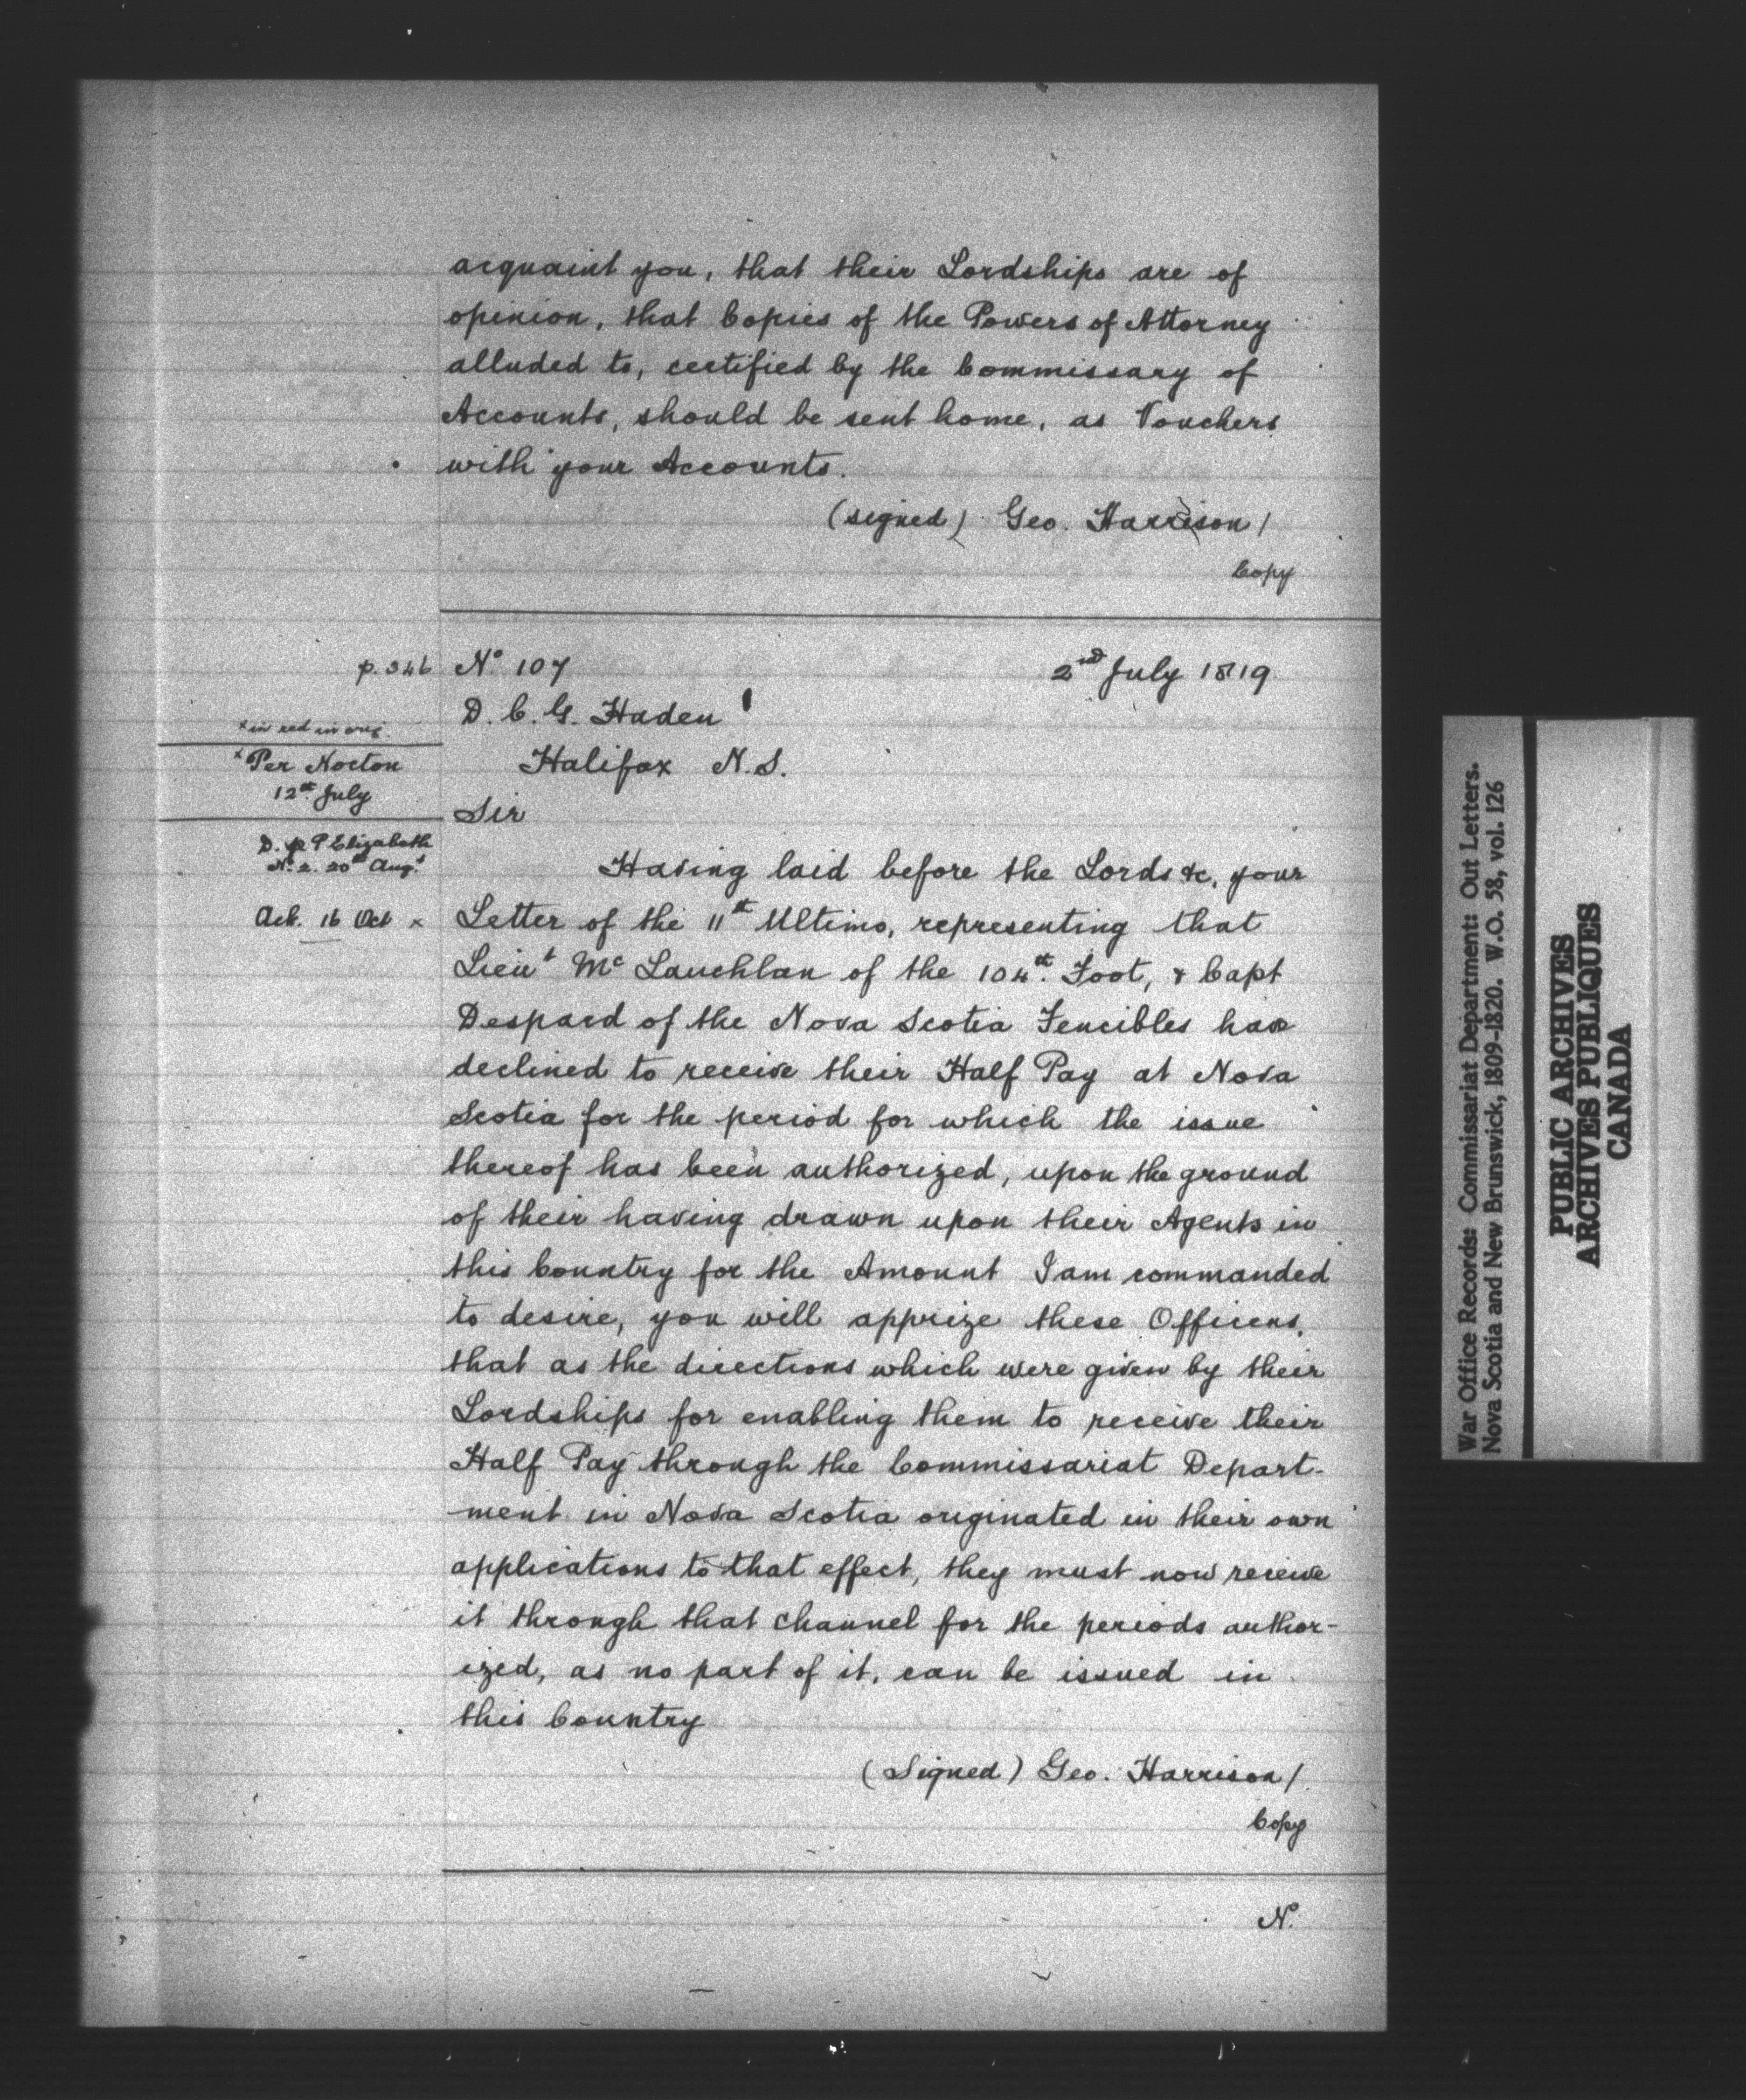 acquaint you, that their Lordships are of
opinion, that Copies of the Powers of Attorney
alluded to, certified by the Commissary of
Accounts, should be sent home, as Vouchers
with your Accounts.
(signed) Geo. Harrison/
Copy
p. 346 No 107 2nd July 1819
D. C. G. Haden
x in red in orig.
Halifax N.S.
x Per Nocton
12th July
Sir
D. pr P Elizabeth
No 2. 20th Augt
Having laid before the Lords &c, your
Ack. 16 Oct x
Letter of the 11th Ultimo, representing that
Lieut Mc Lauchlan of the 104th. Foot, & Capt
Despard of the Nova Scotia Fencibles have
declined to receive their Half Pay at Nova
Scotia for the period for which the issue
thereof has been authorized, upon the ground
of their having drawn upon their Agents in
this Country for the Amount I am commanded
to desire, you will apprize these Officers,
that as the directions which were given by their
Lordships for enabling them to receive their
Half Pay through the Commissariat Depart-
ment in Nova Scotia originated in their own
applications to that effect, they must now receive
it through that channel for the periods author-
ized, as no part of it, can be issued in
this Country
(Signed) Geo. Harrison/
Copy
No.
War Office Records: Commissariat Department: Out Letters.
Nova Scotia and New Brunswick, 1809-1820. W.O. 58, vol. 126
PUBLIC ARCHIVES
ARCHIVES PUBLIQUES
CANADA